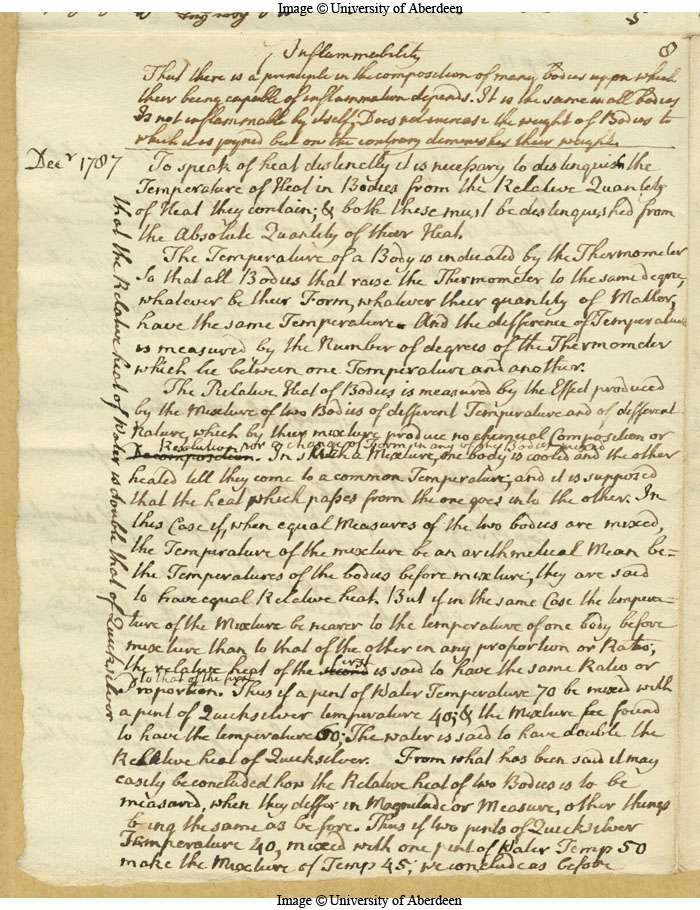 Image © University of Aberdeen
8
7 Inflammability
That there is a principle in the composition of many bodies upon which
their being capable of inflammation depends. It is the same in all bodies
Is not inflammable by itself. Does not increase the weight of Bodies to
which it is joyned but on the contrary diminishes their weight.
Decr 1787
To speak of heat distinctly it is necessary to distinguish the
Temperature of Heat in Bodies from the Relative Quantity
of Heat they contain; & both these must be distinguished from
the Absolute Quantity of their Heat.
The Temperature of a Body is indicated by the Thermometer
So that all Bodies that raise the Thermometer to the same degree,
whatever be their Form, whatever their quantity of Matter,
have the same Temperature. And the difference of Temperature
is measured by the Number of degrees of the Thermometer
which lie between one Temperature and another.
The Relative Heat of Bodies is measured by the Effect produced
by the Mixture of two Bodies of different Temperature and of different
Nature which by their mixture produce no chemical Composition or
Resolution nor a change of Form in any of the Bodies mixed
Decomposition. In such a Mixture, one body is cooled and the other
heated till they come to a common Temperature; and it is supposed
that the heat which passes from the one goes into the other. In
this Case if, when equal Measures of the two bodies are mixed,
the Temperature of the mixture be an arithmetical Mean be=
the Temperatures of the bodies before mixture; they are said
to have equal Relative heat. But if in the same Case the tempera=
ture of the Mixture be nearer to the temperature of one body before
mixture than to that of the other in any proportion or Ratio;
the relative heat of the second first is said to have the same Ratio or
to that of the first
Proportion. Thus if a pint of Water Temperature 70 be mixed with
a pint of Quicksilver temperature 40; & the Mixture be found
to have the temperature 60; The water is said to have double the
Relative heat of Quicksilver. From what has been said it may
easily be concluded how the Relative heat of two Bodies is to be
measured, when they differ in Magnitude or Measure, other things
being the same as before. Thus if two pints of Quicksilver
Temperature 40, mixed with one pint of Water Temp 50
make the Mixture of Temp 45; we conclude as before
that the Relative heat of Water is double that of Quicksilver
Image © University of Aberdeen